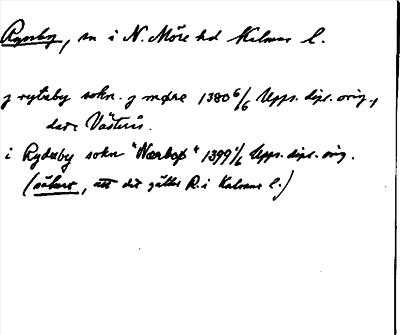 Ryssby, sn i N. Möre hd Kalmar l.
j rytzby sokn. j møre 1380 6/6 Upps. dipl. orig.,
dat. Västerås.
i Rydzby sokn "Nærbø" 1399 1/6 Upps. dipl. orig.
(säkert, att det gäller R. i Kalmar l.)